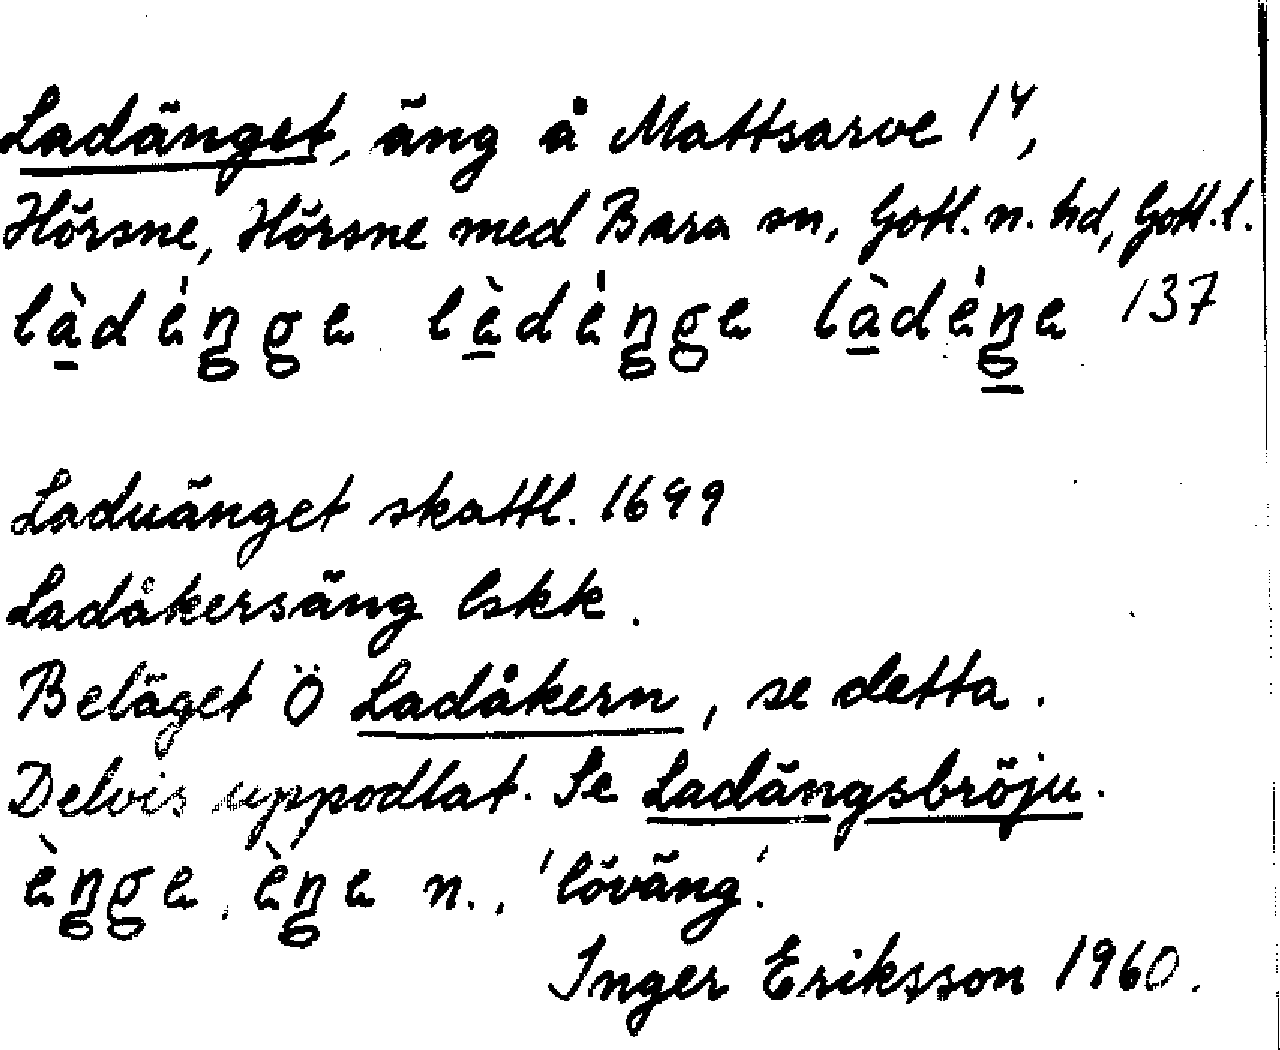 Ladänget, äng å Mattsarve 1⁴,
Hörsne, Hörsne med Bara sn, Gotl. n. hd, Gotl. l.
làdénge lèdénge làdéne 137
Laduänget skattl. 1699
Ladåkersäng lskk.
Beläget Ö Ladåkern, se detta.
Delvis uppodlat. Se Ladängsbröju.
ènge, ène n., 'löväng'.
Inger Eriksson 1960.